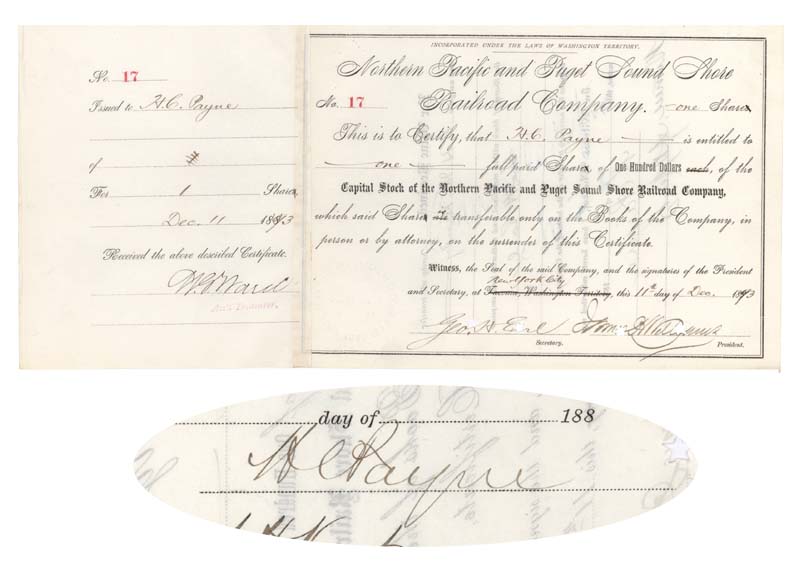 No. 17
Issued to H.C. Payne
of
For 1 Share
Dec. 11 1893
Received the above described Certificate.
W.O. Ward
INCORPORATED UNDER THE LAWS OF WASHINGTON TERRITORY.
Northern Pacific and Puget Sound Shore
No. 17 Railroad Company. one Share
This is to Certify, that H.C. Payne is entitled to
one full paid Share of One Hundred Dollars each, of the
Capital Stock of the Northern Pacific and Puget Sound Shore Railroad Company,
which said Share is transferable only on the Books of the Company, in
person or by attorney, on the surrender of this Certificate.
Witness, the Seal of the said Company, and the signatures of the President
New York City
and Secretary, at Tacoma, Washington Territory, this 11th day of Dec. 1893
Geo. H. Earl
Secretary. President.
day of 188
H C Payne